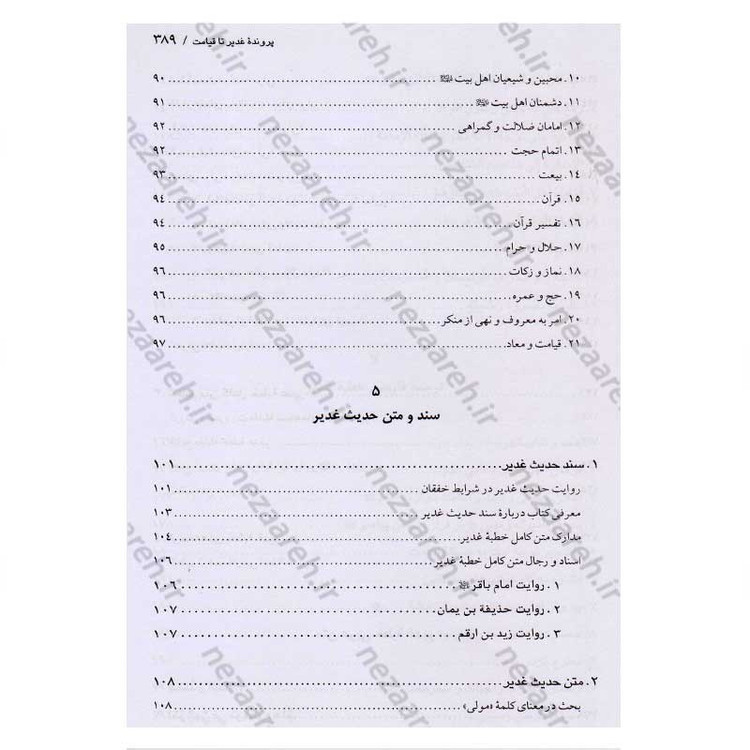 پروندهٔ غدیر تا قیامت / ۳۸۹
۱۰. محبین و شیعیان اهل بیت ﷺ ........ ۹۰
۱۱. دشمنان اهل بیت ........ ۹۱
۱۲. امامان ضلالت و گمراهی ........ ۹۲
۱۳. اتمام حجت ........ ۹۲
۱۴. بیعت ........ ۹۳
۱۵. قرآن ........ ۹۴
۱۶. تفسیر قرآن ........ ۹۴
۱۷. حلال و حرام ........ ۹۵
۱۸. نماز و زکات ........ ۹۶
۱۹. حج و عمره ........ ۹۶
۲۰. امر به معروف و نهی از منکر ........ ۹۶
۲۱. قیامت و معاد ........ ۹۷
۵
سند و متن حدیث غدیر
۱. سند حدیث غدیر ........ ۱۰۱
روایت حدیث غدیر در شرایط خفقان ........ ۱۰۱
معرفی کتاب دربارهٔ سند حدیث غدیر ........ ۱۰۳
مدارک متن کامل خطبهٔ غدیر ........ ۱۰۴
اسناد و رجال متن کامل خطبهٔ غدیر ........ ۱۰۶
۱. روایت امام باقر ........ ۱۰۶
۲. روایت حذیفة بن یمان ........ ۱۰۷
۳. روایت زید بن ارقم ........ ۱۰۷
۲. متن حدیث غدیر ........ ۱۰۸
بحث در معنای کلمهٔ «مولی» ........ ۱۰۸
nezaareh.ir